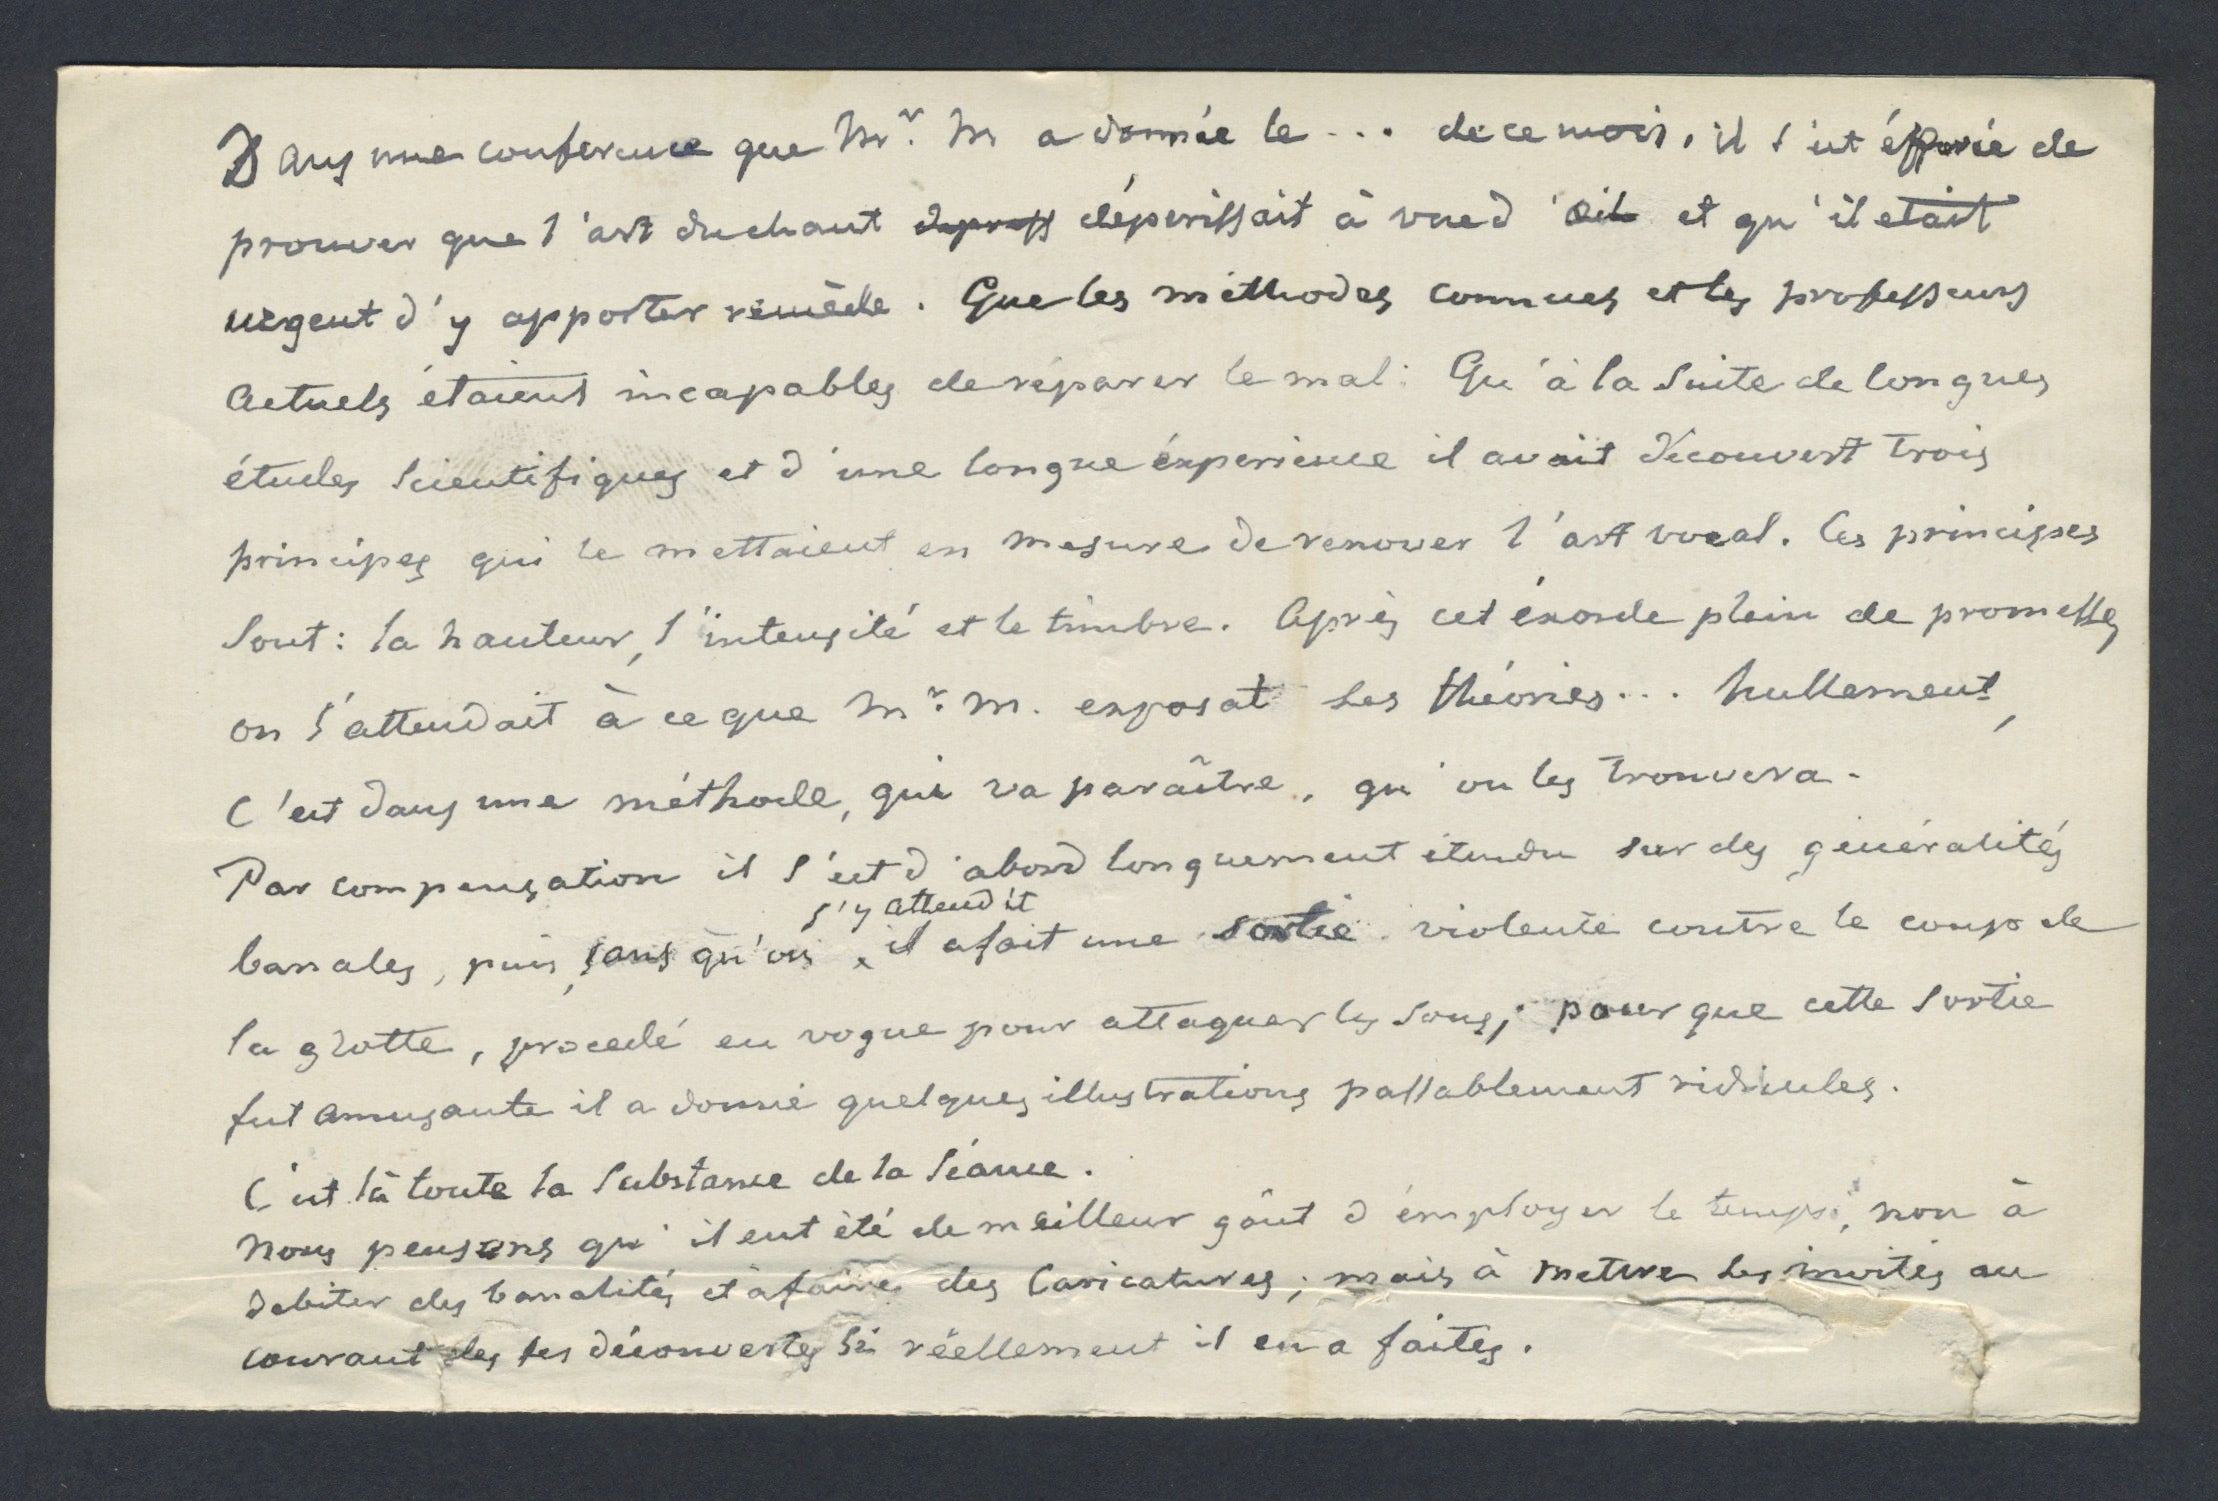 Dans une conference que Mr. M a donnée le ... de ce mois, il s'est éfforcé de
prouver que l'art du chant dépérissait à vue d'œil et qu'il etait
urgent d'y apporter remède. Que les méthodes connues et les professeurs
actuels étaient incapables de réparer le mal: Qu'à la suite de longues
études scientifiques et d'une longue éxperience il avait découvert trois
principes qui le mettaient en mesure de renover l'art vocal. Ces principes
sont: la hauteur, l'intensité et le timbre. Après cet éxorde plein de promesses
on s'attendait à ce que Mr. M. exposat ses théories... Nullement,
c'est dans une méthode, qui va paraître, qu'on les trouvera.
Par compensation il s'est d'abord longuement étendu sur des généralités
s'y attendit
banales, puis, sans qu'on, il a fait une sortie violente contre le coup de
la glotte, procedé en vogue pour attaquer les sons; pour que cette sortie
fut amusante il a donné quelques illustrations passablement ridicules.
C'est là toute la substance de la séance.
Nous pensons qu'il eut été de meilleur goût d'employer le temps, non à
debiter des banalités et à faire des caricatures; mais à mettre les invités au
courant des ses découvertes si réellement il en a faites.